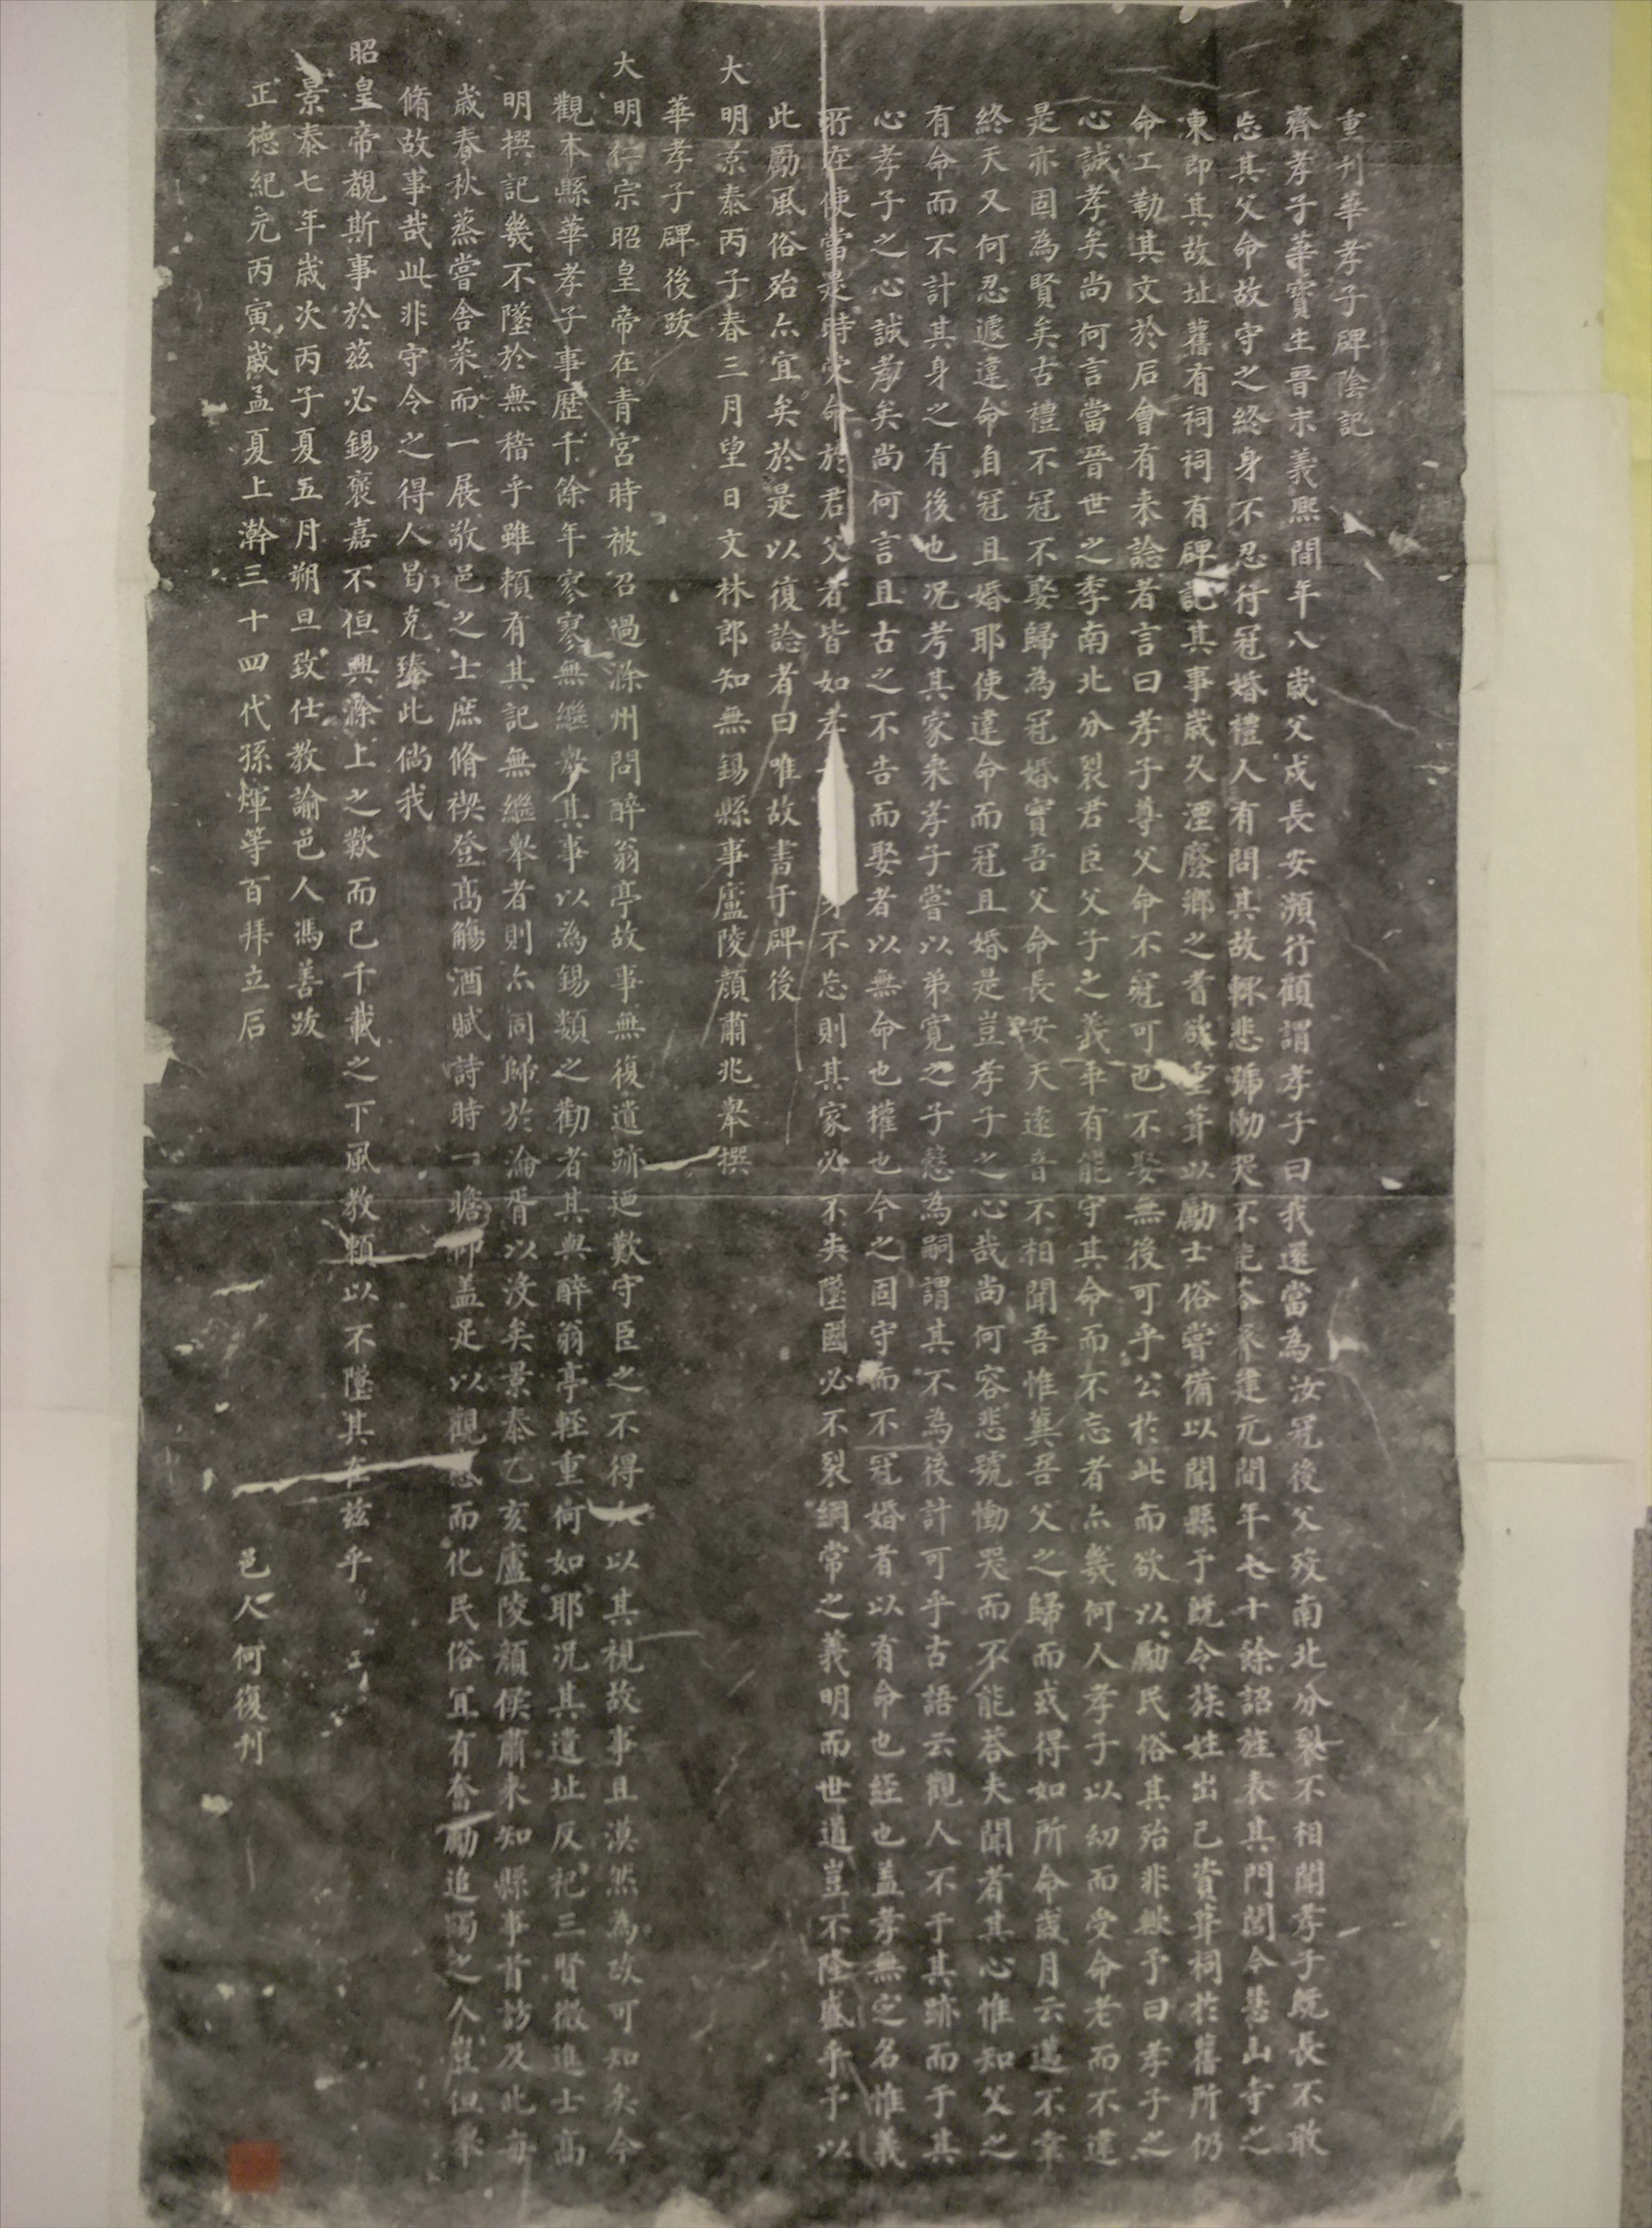 重刊華孝子碑陰記
齊孝子華寶生晉末義熙間年八歲父戍長安瀕行顧謂孝子曰我還當為汝冠後父歿南北分裂不相聞孝子既長不敢
忘其父命故守之終身不忍行冠婚禮人有問其故輒悲號慟哭不能荅齊建元間年七十餘詔旌表其門閭今慧山寺之
東即其故址舊有祠祠有碑記其事歲久湮廢鄉之耆欲重葺以勵士俗嘗備以聞縣予既令族姓出己資葺祠於舊所仍
命工勒其文於后會有来諗者言曰孝子尊父命不冠可也不娶無後可乎公於此而欲以勵民俗其殆非歟予曰孝子之
心誠孝矣尚何言當晉世之季南北分裂君臣父子之義乖有能守其命而不忘者亦幾何人孝子以幼而受命老而不違
是亦固為賢矣古禮不冠不娶歸為冠婚實吾父命長安天遠音不相聞吾惟冀吾父之歸而或得如所命歲月云邁不幸
終天又何忍遽違命自冠且婚耶使違命而冠且婚是豈孝子之心哉尚何容悲號慟哭而不能荅夫聞者其心惟知父之
有命而不計其身之有後也况考其家乗孝子嘗以弟寬之子愨為嗣謂其不為後計可乎古語云觀人不于其跡而于其
心孝子之心誠孝矣尚何言且古之不告而娶者以無命也權也今之固守而不冠婚者以有命也経也盖孝無定名惟義
所在使當是時受命於君父者皆如孝身不忘則其家必不失墜國必不裂綱常之義明而世道豈不隆盛乎予以
此勵風俗殆亦宜矣於是以復諗者曰唯故書于碑後
大明景泰丙子春三月望日文林郎知無錫縣事廬陵顏肅兆舉撰
華孝子碑後跋
大明仁宗昭皇帝在青宮時被召過滁州問醉翁亭故事無復遺跡廼歎守臣之不得人以其視故事且漠然為政可知矣今
觀本縣華孝子事歷千餘年寥寥無繼舉其事以為錫類之勸者其與醉翁亭軽重何如耶况其遺址反祀三賢微進士高
明撰記幾不墜於無稽乎雖頼有其記無繼舉者則亦同歸於淪胥以沒矣景泰乙亥廬陵顏侯肅来知縣事首訪及此每
歲春秋蒸嘗舍菜而一展敬邑之士庶脩禊登高觴酒賦詩時一瞻仰盖足以觀感而化民俗宜有奮勵追躅之人豈但舉
脩故事哉此非守令之得人曷克臻此倘我
昭皇帝覩斯事於茲必錫褒嘉不但興滁上之歎而已千載之下風教頼以不墜其在茲乎
景泰七年歲次丙子夏五月朔旦致仕教諭邑人馮善跋
正德紀元丙寅歲孟夏上澣三十四代孫煇等百拜立后
邑人何復刊